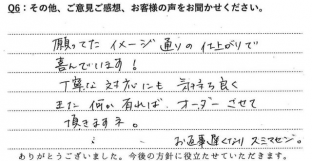 Q6：その他、ご意見ご感想、お客様の声をお聞かせください。
願ってた イメージ 通りの 仕上がりで
喜んでいます!
丁寧な 対応にも 気持ち良く
また 何か 有れば オーダー させて
頂きますネ。
お返事遅くなり スミマセン。
ありがとうございました。今後の方針に役立たせていただきます。